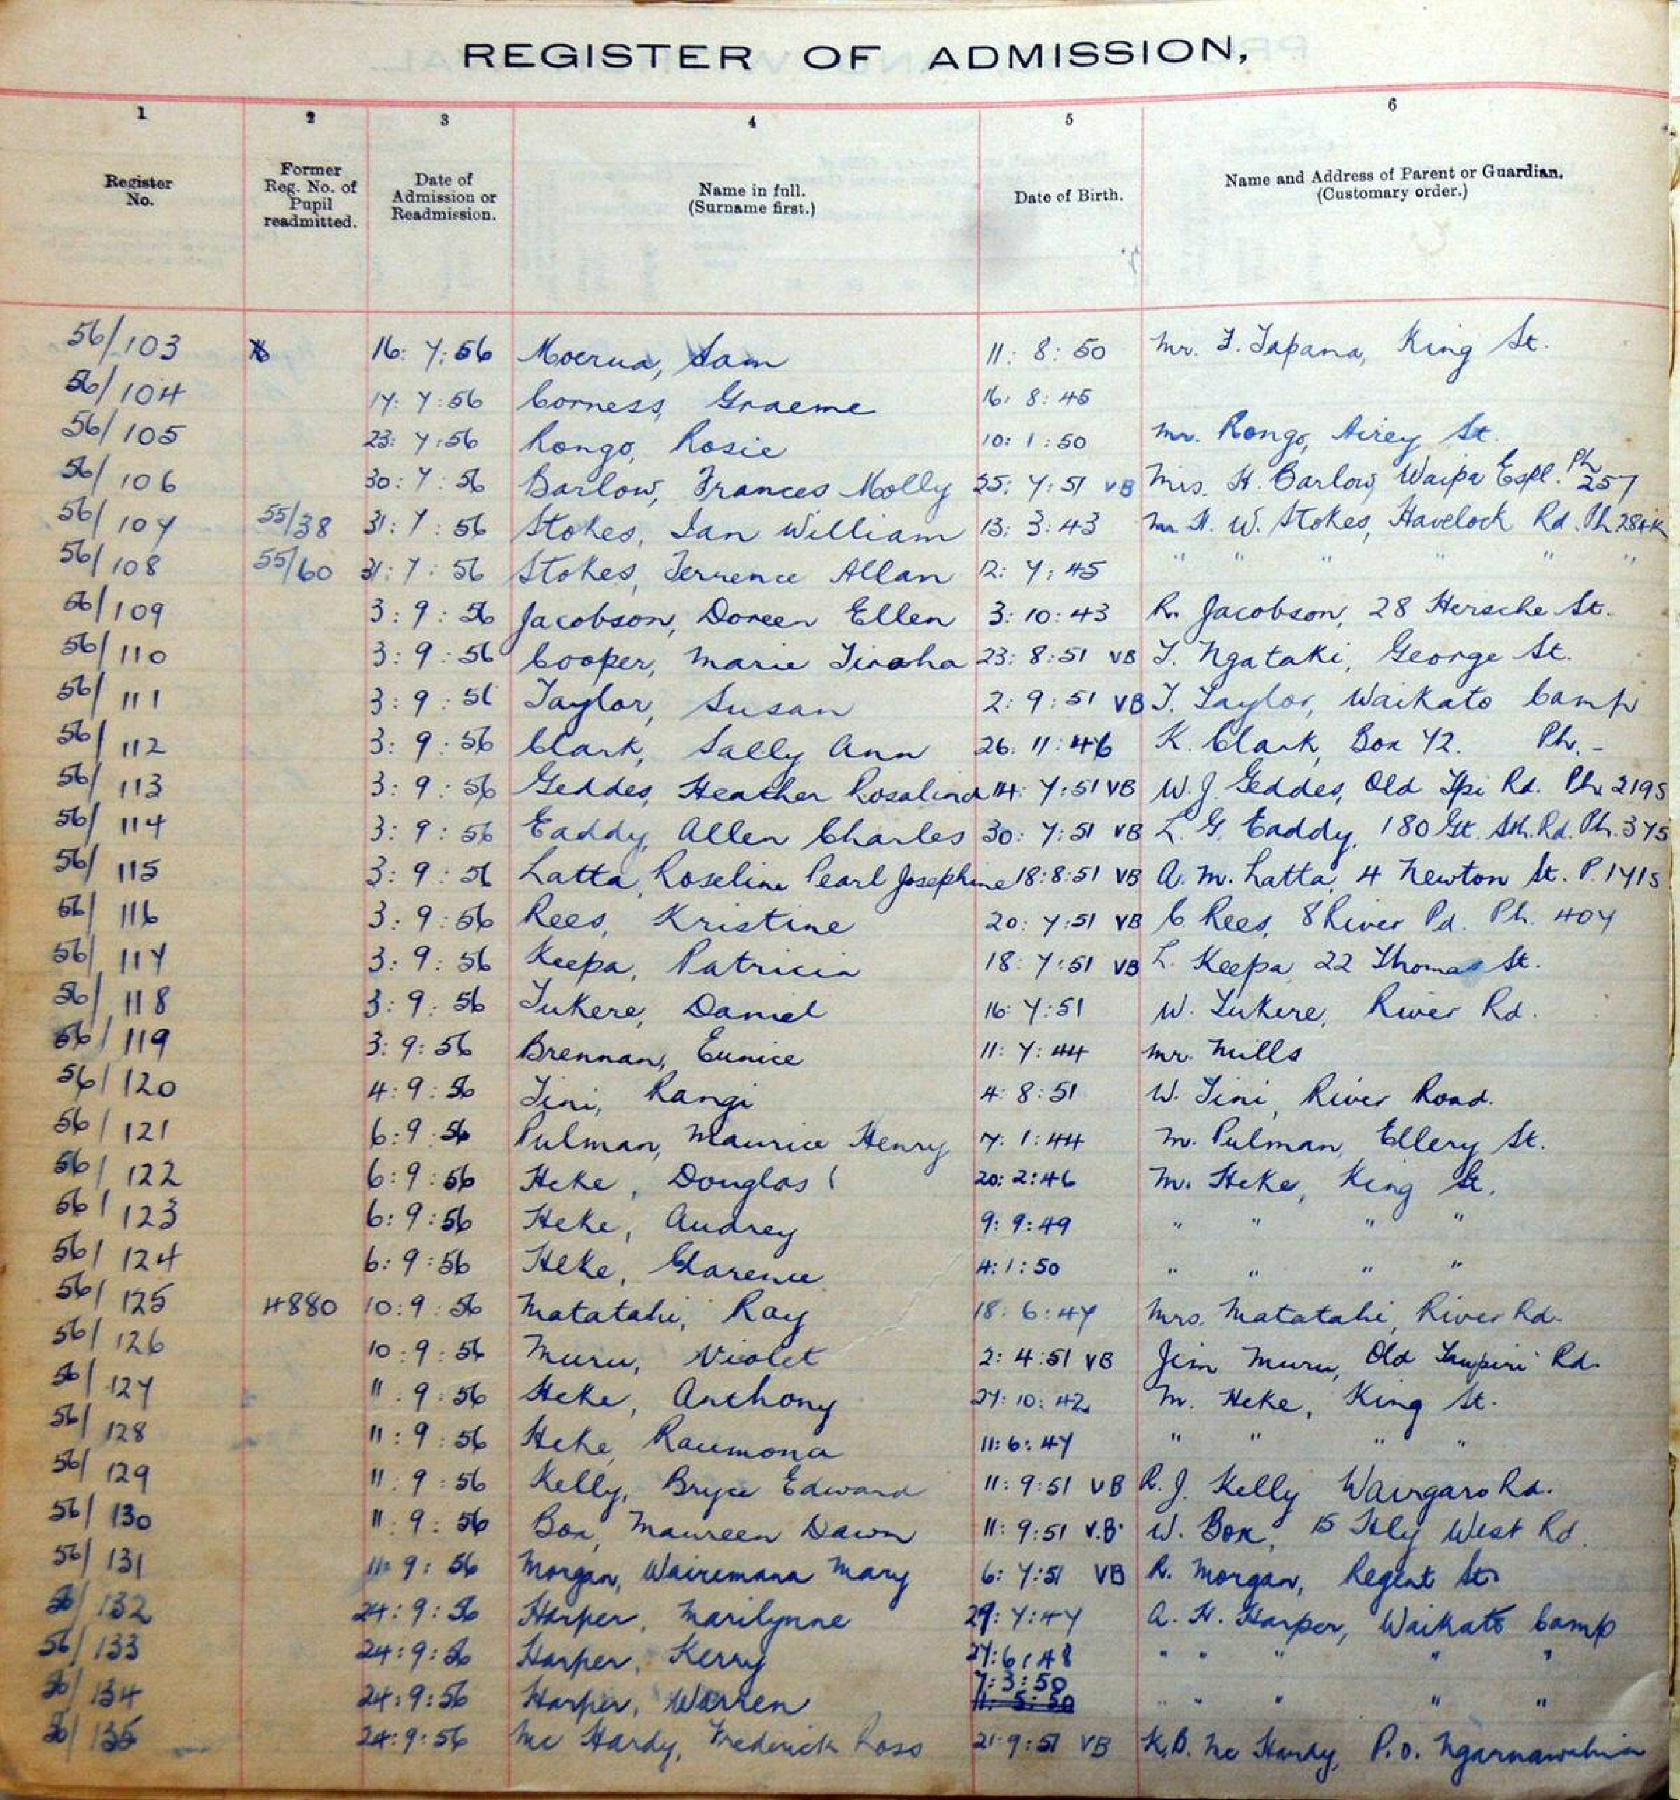 REGISTER OF ADMISSION,
1 2 3 4 5 6
Register No. Former Reg. No. of Pupil readmitted. Date of Admission or Readmission. Name in full. (Surname first.) Date of Birth. Name and Address of Parent or Guardian. (Customary order.)
56/103 16:7:56 Moerua, Sam 11:8:50 Mr. T. Tapana, King St.
56/104 17:7:56 Corness, Graeme 16:8:45
56/105 23:7:56 Rongo, Rosie 10:1:50 Mr. Rongo, Airey St.
56/106 30:7:56 Barlow, Frances Molly 25:7:51 VB Mrs. H. Barlow, Waipa Espl. Ph 257
56/107 55/38 31:7:56 Stokes, Ian William 13:3:43 Mr. H. W. Stokes, Havelock Rd. Ph.
56/108 55/60 31:7:56 Stokes, Terrence Allan 12:7:45 " " " " " "
56/109 3:9:56 Jacobson, Doreen Ellen 3:10:43 R. Jacobson, 28 Hersche St.
56/110 3:9:56 Cooper, Marie Tiraha 23:8:51 VB T. Ngataki, George St.
56/111 3:9:56 Taylor, Susan 2:9:51 VB T. Taylor, Waikato Camp
56/112 3:9:56 Clark, Sally Ann 26:11:46 K. Clark, Box 72. Ph. -
56/113 3:9:56 Geddes, Heather Rosalind 14:7:51 VB W. J. Geddes, Old Tpi Rd. Ph 219S
56/114 3:9:56 Eaddy, Allen Charles 30:7:51 VB L. G. Eaddy, 180 Gt. Sth. Rd. Ph. 375
56/115 3:9:56 Latta, Roseline Pearl Josephine 18:8:51 VB A. M. Latta, 4 Newton St. P. 171S
56/116 3:9:56 Rees, Kristine 20:7:51 VB C Rees, 8 River Rd. Ph. 407
56/117 3:9:56 Keepa, Patricia 18:7:51 VB L. Keepa 22 Thomas St.
56/118 3:9:56 Tukere, Daniel 16:7:51 W. Tukere, River Rd.
56/119 3:9:56 Brennan, Eunice 11:7:44 Mr. Mills
56/120 4:9:56 Tini, Rangi 4:8:51 W. Tini, River Road.
56/121 6:9:56 Pulman, Maurice Henry 7:1:44 M. Pulman, Ellery St.
56/122 6:9:56 Heke, Douglas 20:2:46 M. Heke, King St.
56/123 6:9:56 Heke, Audrey 9:9:49 " " " "
56/124 6:9:56 Heke, Clarence 4:1:50 " " " "
56/125 4880 10:9:56 Matatahi, Ray 18:6:47 Mrs. Matatahi, River Rd.
56/126 10:9:56 Muru, Violet 2:4:51 VB Jim Muru, Old Taupiri Rd.
56/127 11:9:56 Heke, Anthony 27:10:42 M. Heke, King St.
56/128 11:9:56 Heke, Raumona 11:6:47 " " " "
56/129 11:9:56 Kelly, Bryce Edward 11:9:51 VB R. J. Kelly Waingaro Rd.
56/130 11:9:56 Box, Maureen Dawn 11:9:51 V.B. W. Box, 15 West Rd.
56/131 11:9:56 Morgan, Wairemana Mary 6:7:51 VB R. Morgan, Regent St.
56/132 24:9:56 Harper, Marilynne 29:7:47 A. H. Harper, Waikato Camp
56/133 24:9:56 Harper, Kerry 27:6:48 " " " " "
56/134 24:9:56 Harper, Warren 7:3:50 11:5:50 " " " " "
56/135 24:9:56 Mc Hardy, Frederick Ross 21:9:51 VB K. B. Mc Hardy, P.O. Ngaruawahia